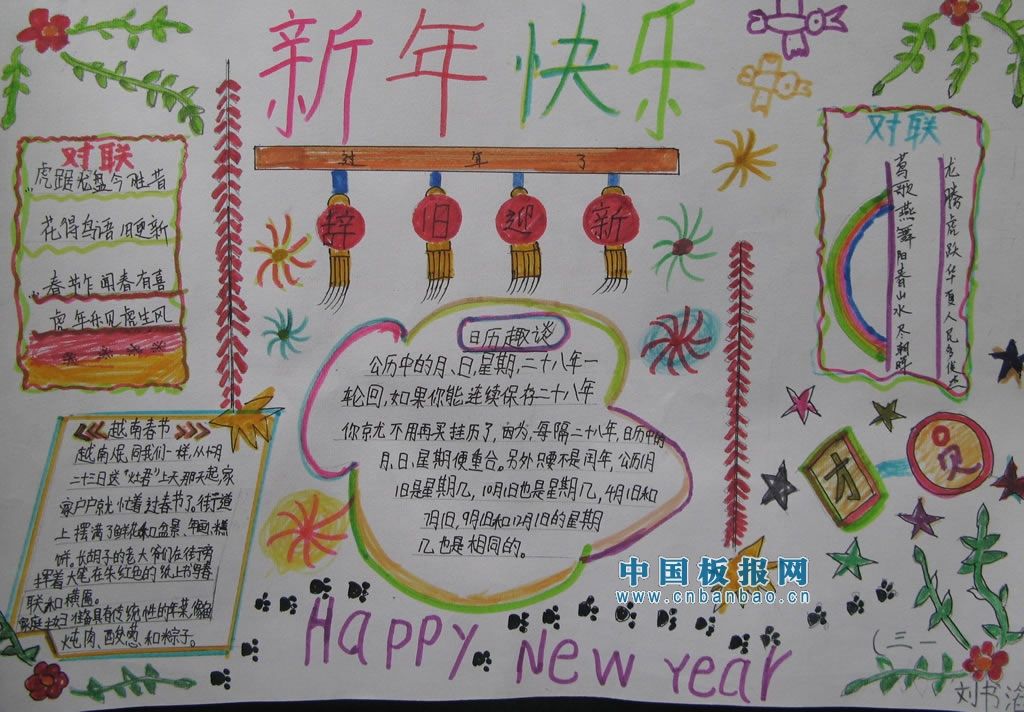 新年快乐
过年了
辞旧迎新
对联
虎踞龙盘今胜昔
花得鸟语旧更新
春节乍闻春有喜
虎年乐见虎生风
对联
龙腾虎跃华夏人民
莺歌燕舞阳春山水尽朝晖
日历趣谈
公历中的月、日、星期,二十八年一
轮回,如果你能连续保存二十八年
你就不用再买挂历了,因为,每隔二十八年,日历中的
月、日、星期便重合。另外只要不是闰年,公历1月
1日是星期几,10月1日也是星期几,4月1日和
7月1日,9月1日和12月1日的星期
几也是相同的。
越南春节
越南人民同我们一样,从12月
二十三日送“灶君”上天那天起,家
家户户就忙着过春节了。街道
上摆满了鲜花和盆景、年画、糕
饼。长胡子的老大爷们在街旁
挥着大笔在朱红色的纸上书写春
联和横匾。
家庭主妇准备具有传统性的年菜、
炖肉、酸葱和粽子。
才
员
中国板报网
www.cnbanbao.cn
Happy New Year
(三一
刘书